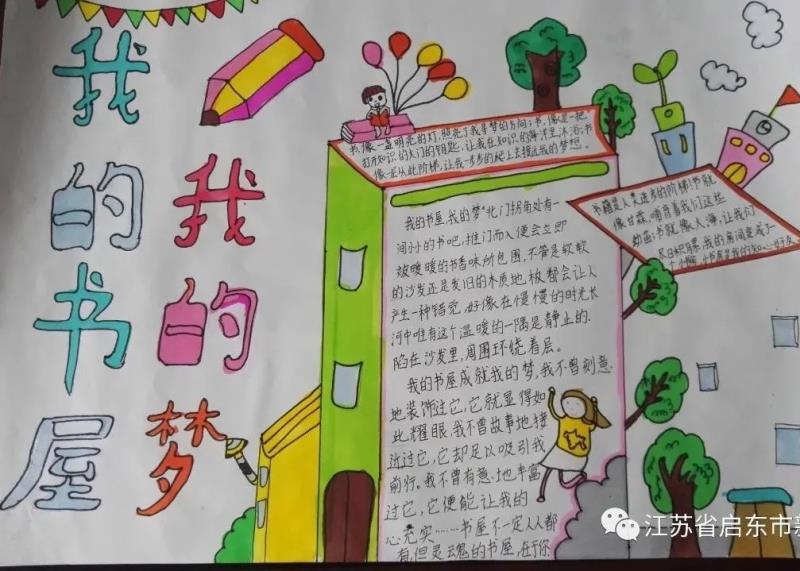 我的书屋
我的梦
书,像一盏明亮的灯,照亮了我寻梦的方向;书,像是一把
打开知识的大门的钥匙,让我在知识的海洋里沐浴;书
像一座从此阶梯,让我一步步的爬上去接近我的梦想。
书籍是人类进步的阶梯!书就
像甘霖,哺育着我们这些
幼苗;书就像人海,让我们
我的书屋,我的梦"北门拐角处有一
间小小的书吧,推门而入便会立即
被暖暖的书香味所包围,不管是软软
的沙发还是发旧的木质地板都会让人
产生一种错觉,好像在慢慢的时光长
河中唯有这个温暖的一隅是静止的.
陷在沙发里,周围环绕着层。
我的书屋成就我的梦,我不曾刻意
地装饰过它,它就显得如
此耀眼.我不曾故事地接
近过它,它却足以吸引我
前行.我不曾有意地丰富
过它,它便能让我的
心充实……书屋不一定人人都
有,但灵魂的书屋,在于你
江苏省启东市新